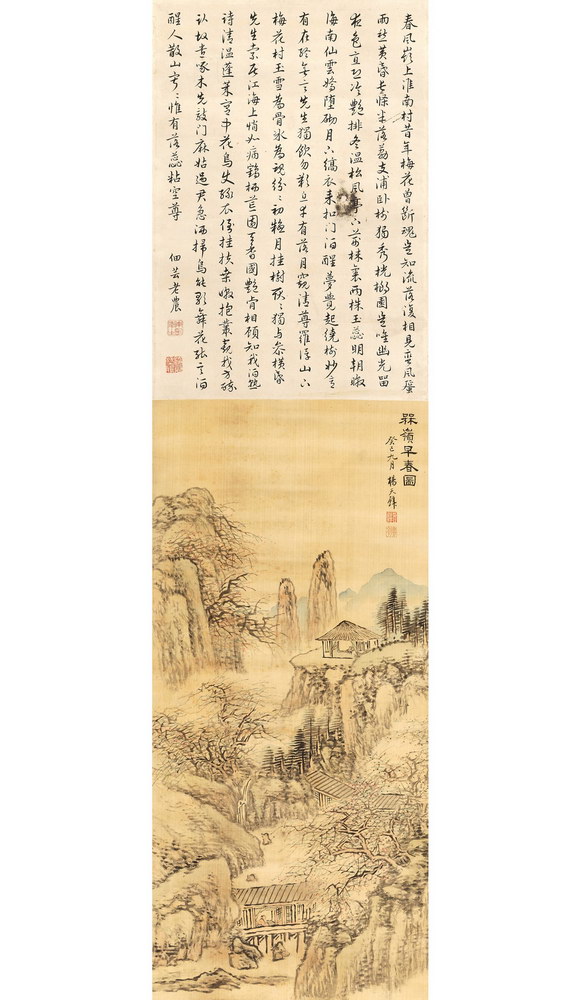 春風嶺上淮南村昔年梅花曾斷魂豈知流落復相見蠻風蜑
雨愁黃昏長條半落荔支浦卧樹獨秀桄榔園豈唯幽光留
夜色直恐冷艷排冬溫松風亭下荊棘裏兩株玉蕊明朝暾
海南仙雲嬌墮砌月下縞衣來扣門酒醒夢覺起繞樹妙意
有在終無言先生獨飲勿歎息幸有落月窺清尊羅浮山下
梅花村玉雪為骨冰為魂紛紛初疑月挂樹耿耿獨與參橫昏
先生索居江海上悄如病鶴栖荒園天香國艷肯相顧知我酒熟
詩清溫蓬萊宮中花鳥使綠衣倒挂扶桑暾抱叢窺我方醉
卧故遣啄木先敲門麻姑過君急洒掃鳥能歌舞花能言酒
醒人散山寂寂惟有落蕊粘空尊 佃芸老農
槑嶺早春圖
癸巳九月 楊天